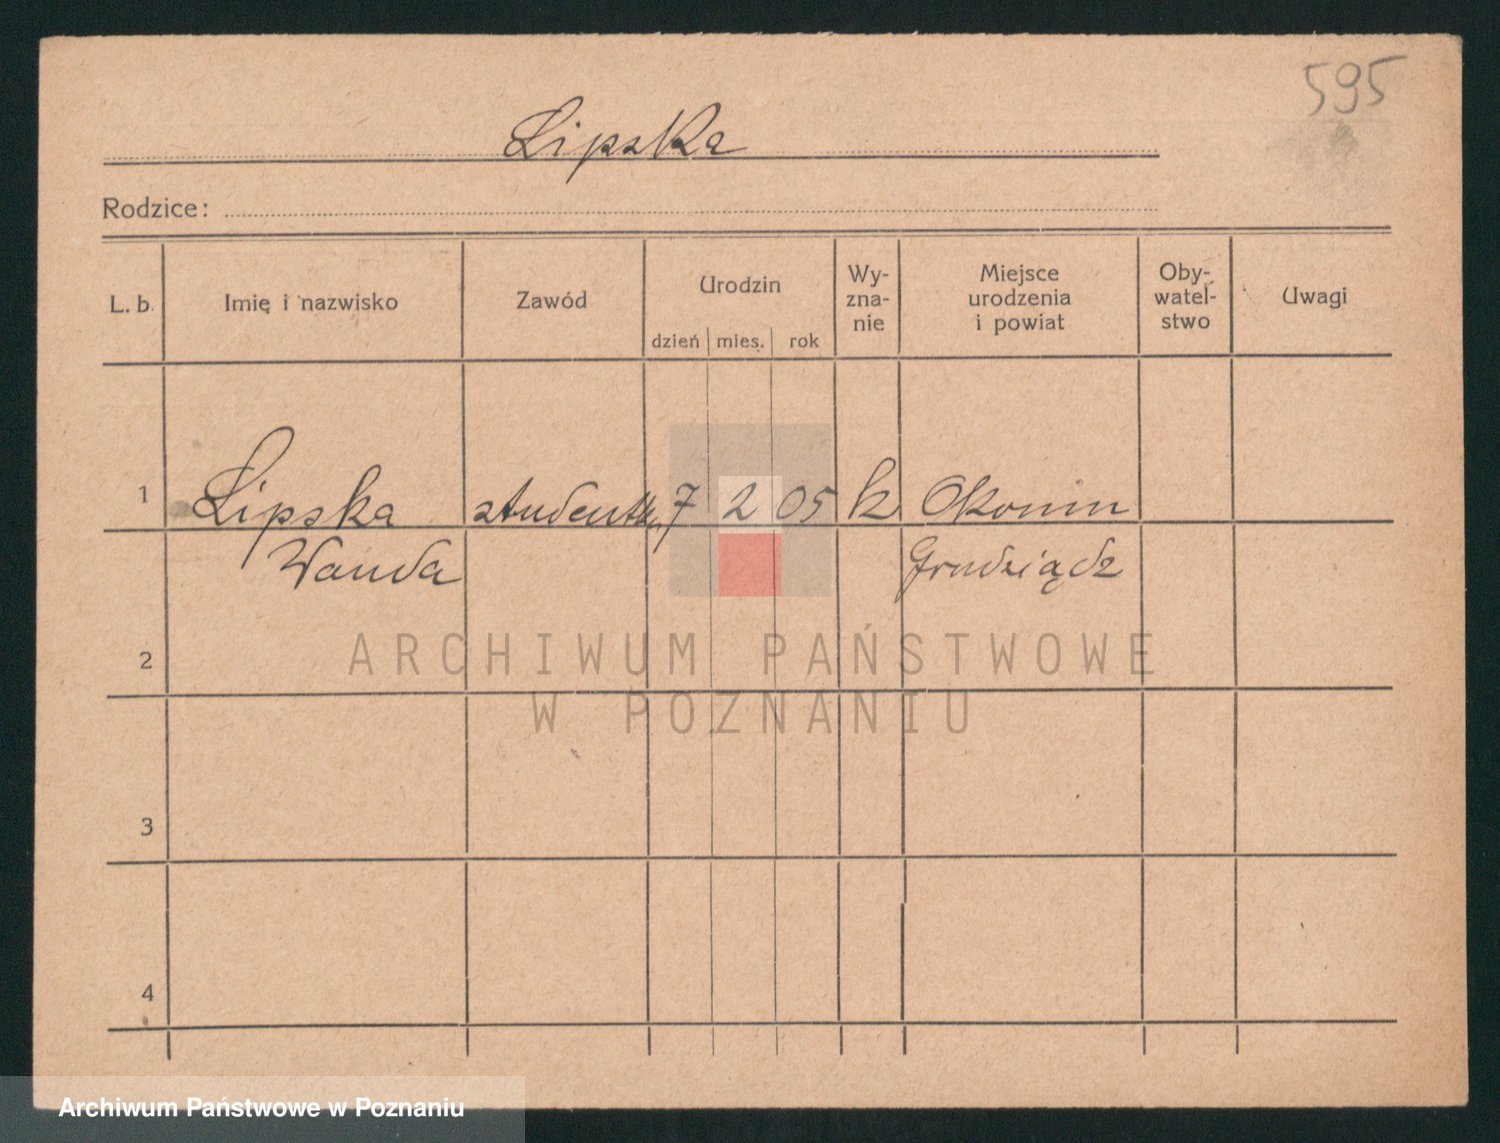 595
Lipska
Rodzice:
L. b.
Imię i nazwisko
Zawód
Urodzin
dzień mies. rok
Wy-
zna-
nie
Miejsce
urodzenia
i powiat
Oby-
watel-
stwo
Uwagi
1 Lipska studentka 7 2 05 k Okonin
Wanda Grudziądz
2
3
4
ARCHIWUM PAŃSTWOWE
W POZNANIU
Archiwum Państwowe w Poznaniu